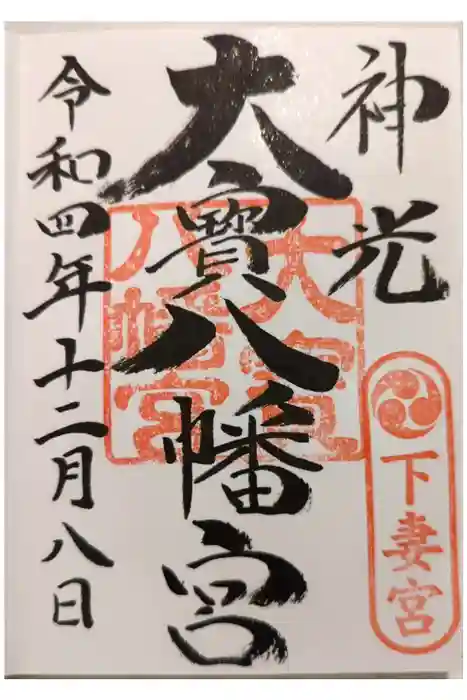 神光
下妻宮
大寳八幡宮
大寳八幡宮
令和四年十二月八日